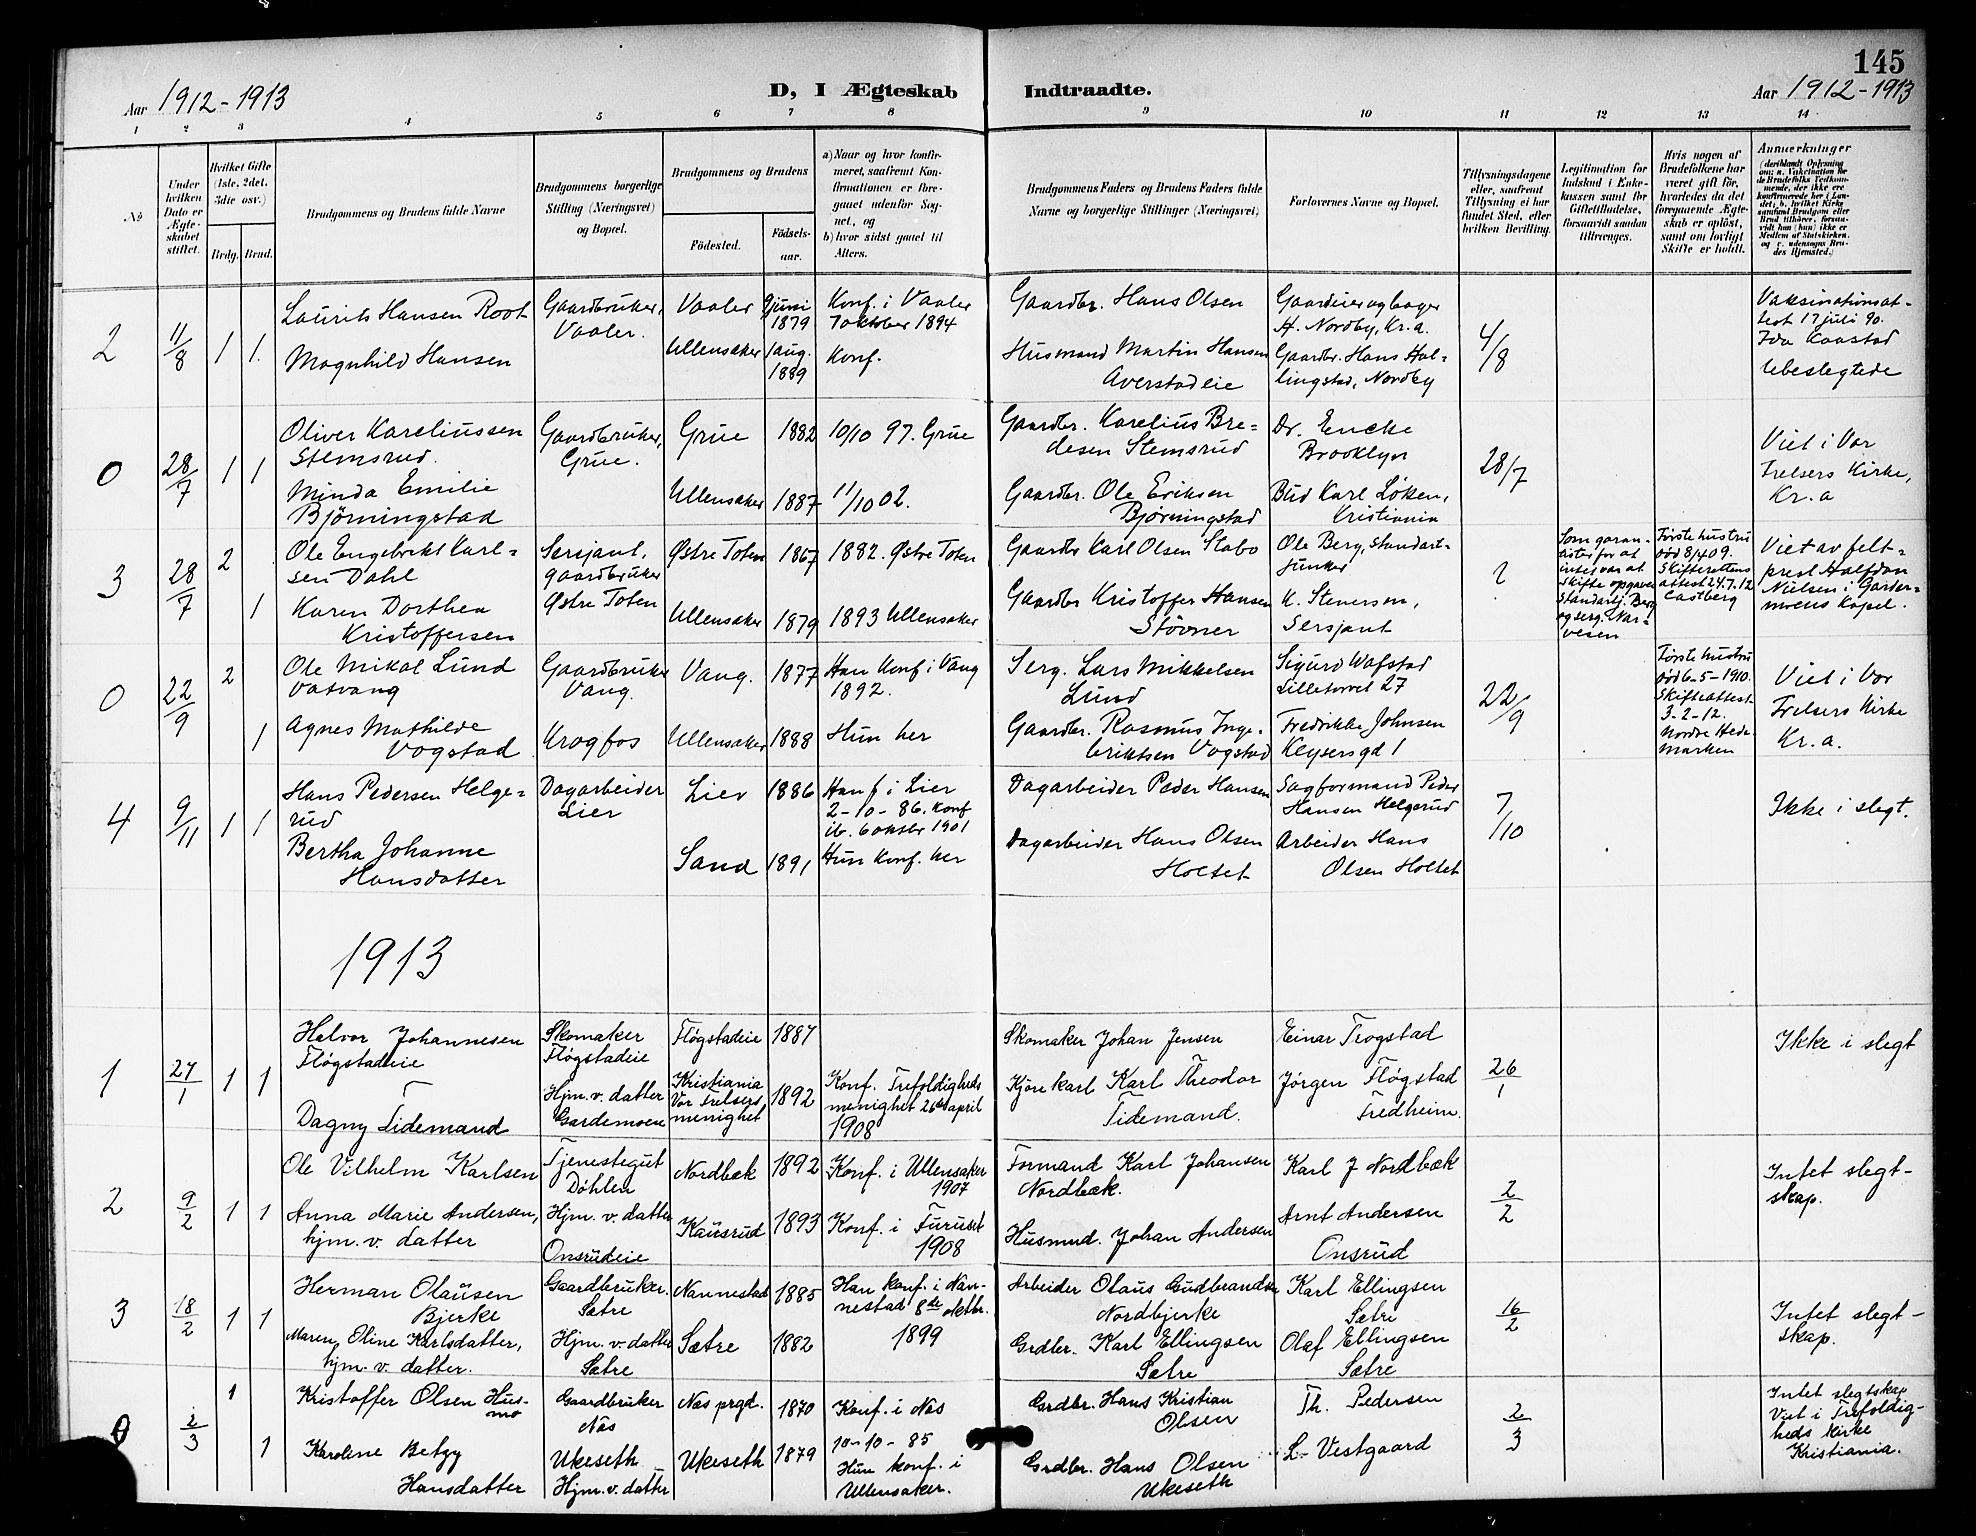 145
Aar 1912-1913
D, I Ægteskab Indtraadte.
Aar 1912-1913
1 2 3 4 5 6 7 8 9 10 11 12 13 14
No
Under hvilken Dato er Ægteskabet stiftet.
Hvilket Gifte (1ste, 2det, 3die osv.)
Brdg. Brud.
Brudgommens og Brudens fulde Navne
Brudgommens borgerlige Stilling (Næringsvei) og Bopæl.
Brudgommens og Brudens
Fødested.
Fødselsaar.
a) Naar og hvor konfirmeret, saafremt Konfirmationen er foregaaet udenfor Sognet, og
b) hvor sidst gaaet til Alters.
Brudgommens Faders og Brudens Faders fulde Navne og borgerlige Stillinger (Næringsvei)
Forlovernes Navne og Bopæl.
Tillysningsdagene eller, saafremt Tillysning ei har fundet Sted, efter hvilken Bevilling.
Legitimation for Indskud i Enkekassen samt for Giftetilladelse, forsaavidt saadan tiltrænges.
Hvis nogen af Brudefolkene har været gift før, hvorledes da det foregaaende Ægteskab er opløst, samt om lovligt Skifte er holdt.
Anmerkninger
(deriblandt Oplysning om: a. Vakcination for de Brudefolks Vedkommende, der ikke ere konfirmerede her i Landet; b. hvilket Kirkesamfund Brudgom eller Brud tilhører, forsaavidt han (hun) ikke er Medlem af Statskirken, og c. udensogns Brudes Hjemsted.)
2
11/8
1 1.
Laurits Hansen Root
Magnhild Hansen
Gaardbruker,
Vaaler.
Vaaler
Ullensaker
9 juni
1879
1 aug.
1889
Konf. i Vaaler
7 oktober 1894
Konf.
Gaardbr. Hans Olsen
Husmand Martin Hansen
Averstadeie
Gaardeier og bager
H. Nordby, Kr.a.
Gaardbr. Hans Hal=
lingstad, Nordby
4/8
Vaksinationsat-
test 17 juli 90.
Ida Kaastad
Ubeslegtede
0
28/7
1 1
Oliver Kareliussen
Stemsrud.
Minda Emilie
Bjørningstad
Gaardbruker,
Grue.
Grue
Ullensaker
1882
1887
10/10 97. Grue
11/10 02.
Gaardbr. Karelius Bre=
desen Stemsrud
Gaardbr. Ole Eriksen
Bjørningstad
Dr. Encke
Brooklyn
Bud Karl Løken,
Kristiania
28/7
Viet i Vor
Frelsers Kirke,
Kr. a
3
28/7
2
1
Ole Engebrekt Karl=
sen Dahl
Karen Dorthea
Kristoffersen
Sersjant,
gaardbruker
Østre Toten
Østre Toten
Ullensaker
1867
1879
1882. Østre Toten
1893 Ullensaker
Gaardbr Karl Olsen Stabo
Gaardbr Kristoffer Hansen
Støvner
Ole Berg, standart-
junker
K. Stenersen,
Sersjant
?
Som garan-
tister for at
intet var at
skifte opgaves
Standartj. Berg
og serg. Nar-
vesen
Første hustru
død 8/4 09.
Skifterettens
attest 24.7.12
Castberg
Viet av felt=
prest Halfdan
Nielsen i Garder=
moens Kapel.
0
22/9
2
1
Ole Mikal Lund
Vatvang
Agnes Mathilde
Vogstad
Gaardbruker
Vang.
Krogfos
Vang.
Ullensaker
1877
1888
Han Konf. i Vang
1892.
Hun her
Serg. Lars Mikkelsen
Lund
Gaardbr. Rasmus Inge.
briktsen Vogstad
Sigurd Wafstad
Lilletorvet 27
Fredrikke Johnsen
Keysersgd 1
22/9
Første hustru
død 6-5-1910.
Skifteattest
3-2-12.
Nordre Hede-
marken
Viet i Vor
Frelsers Kirke
Kr. a.
4
9/11
1 1
Hans Pedersen Helge=
rud
Bertha Johanne
Hansdatter
Dagarbeider
Lier
Lier
Sand
1886
1891
Han f i Lier
2-10-86. Konf
ib. 6 oktbr 1901
Hun Konf. her
Dagarbeider Peder Hansen
Dagarbeider Hans Olsen
Holtet
Sagformand Peder
Hansen Helgerud
Arbeider Hans
Olsen Holtet
7/10
Ikke i slegt.
1913
1
27/1
1 1
Halvor Johannesen
Fløgstadeie
Dagny Tidemand
Skomaker
Fløgstadeie
Hjm. v. datter
Gardemoen
Fløgstadeie
Kristiania
Vor Frelsers
menighet
1887
1892
Konf. Trefoldigheds
menighet 26de april
1908
Skomaker Johan Jensen
Kjørekarl Karl Theodor
Tidemand.
Einar Trogstad
Jørgen Fløgstad
Fredheim.
26/1
Ikke i slegt
2
9/2
1 1
Ole Vilhelm Karlsen
Anna Marie Andersen,
hjm. v. datter
Tjenestegut
Døhlen
Hjm. v. datter
Onsrudeie
Nordbæk
Kausrud
1892
1893
Konf. i Ullensaker
1907
Konf. i Furuset
1908
Formand Karl Johansen
Nordbæk.
Husmnd. Johan Andersen
Karl J Nordbæk
Arnt Andersen
Onsrud
2/2
Intet slegt-
skap.
3
18/2
1 1
Herman Olausen
Bjerke
Maren Oline Karlsdatter,
hjm. v. datter.
Gaardbruker.
Sætre
Hjm. v. datter
Sætre
Nannestad
Sætre
1885
1882
Han konf. i Nan-
nestad 8de oktbr.
1899
Arbeider Olaus Gudbrandsen
Nordbjerke
Grdbr. Karl Ellingsen
Sætre
Karl Ellingsen
Sætre
Olaf Ellingsen
Sætre
16/2
Intet slegt-
skap.
0
2/3
1
1
Kristoffer Olsen Hus-
mo
Karoline Betzy
Hansdatter
Gaardbruker
Nås
Ukeseth
Hjm. v. datter
Næs prgd.
Ukeseth
1870
1879
Konf. i Nås
10-10-85
Hun konf. i
Ullensaker.
Grdbr. Hans Kristian
Olsen
Grdbr. Hans Olsen
Ukeseth
Th. Pedersen
L. Vestgaard
2/3
Intet slegtskap
Viet i Trefoldig-
heds kirke
Kristiania.